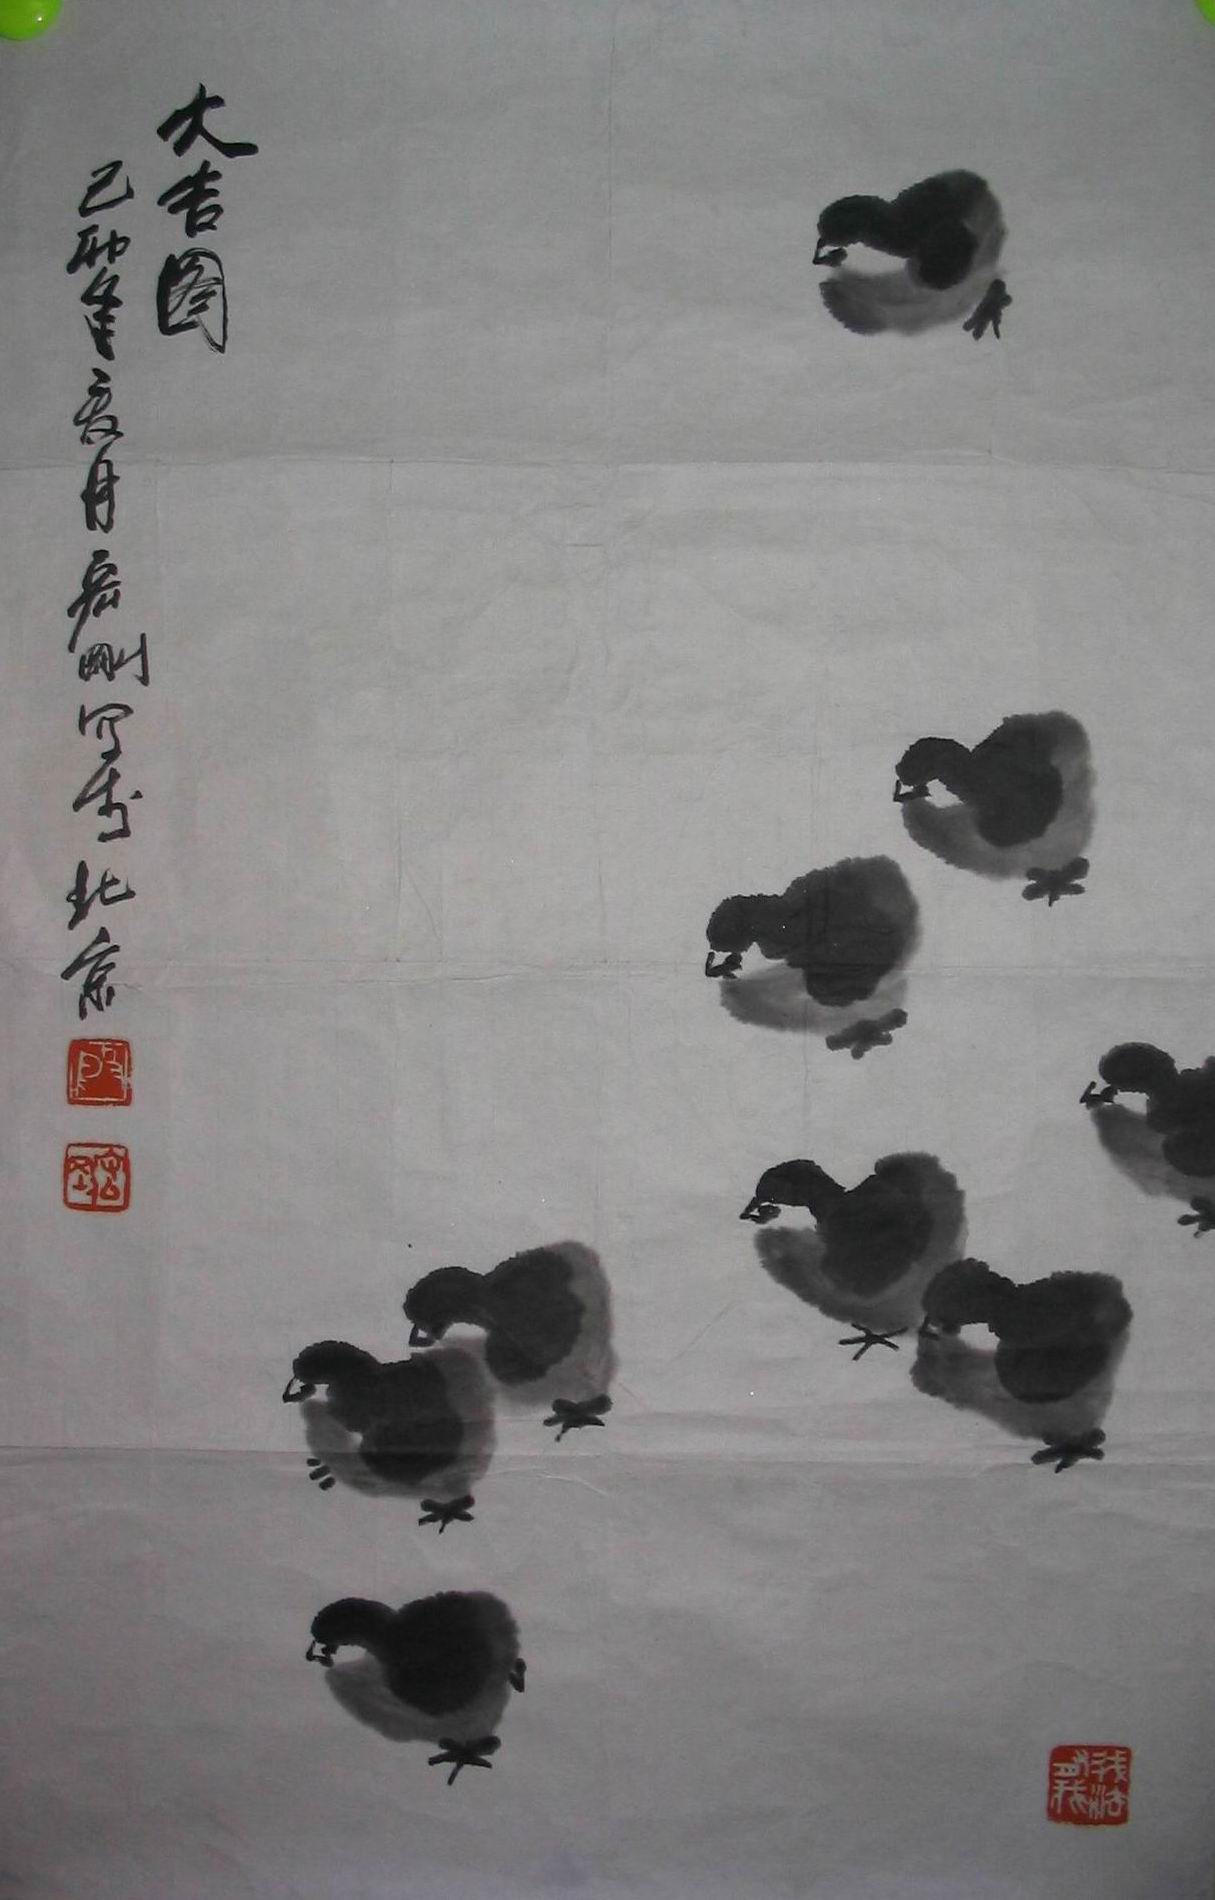 大吉图
己卯年夏月宏刚写于北京